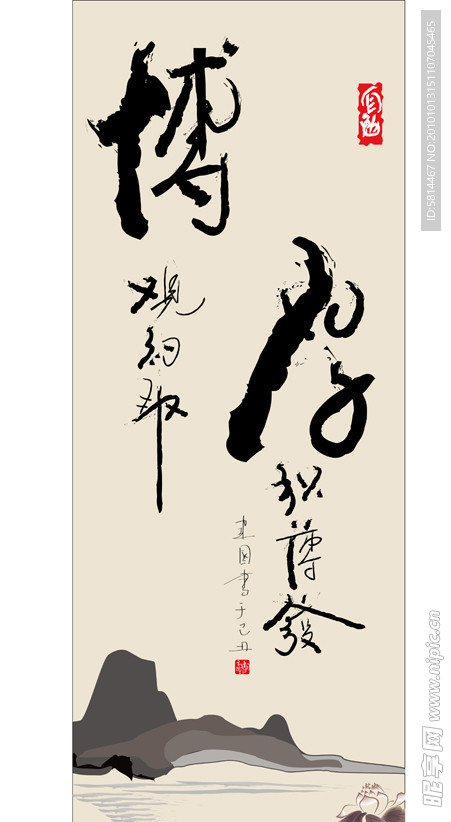 博
观约取
厚
积薄發
建国書于己丑
自勉
ID:5814467 NO:20101013151107045465
昵享网 www.nipic.cn